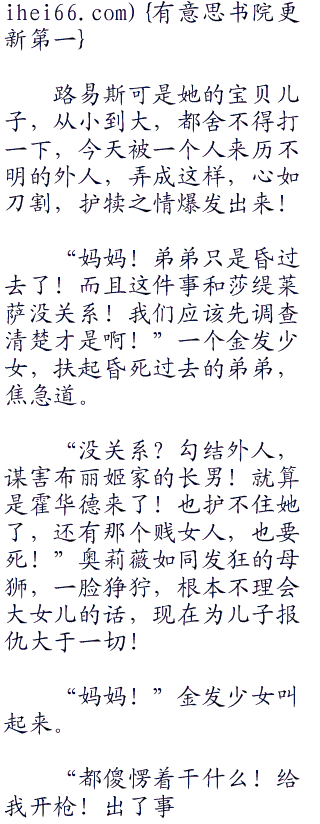 ihei66.com) {有意思书院更
新第一}
路易斯可是她的宝贝儿
子，从小到大，都舍不得打
一下，今天被一个人来历不
明的外人，弄成这样，心如
刀割，护犊之情爆发出来！
“妈妈！弟弟只是昏过
去了！而且这件事和莎缇莱
萨没关系！我们应该先调查
清楚才是啊！”一个金发少
女，扶起昏死过去的弟弟，
焦急道。
“没关系？勾结外人，
谋害布丽姬家的长男！就算
是霍华德来了！也护不住她
了，还有那个贱女人，也要
死！”奥莉薇如同发狂的母
狮，一脸狰狞，根本不理会
大女儿的话，现在为儿子报
仇大于一切！
“妈妈！”金发少女叫
起来。
“都傻愣着干什么！给
我开枪！出了事